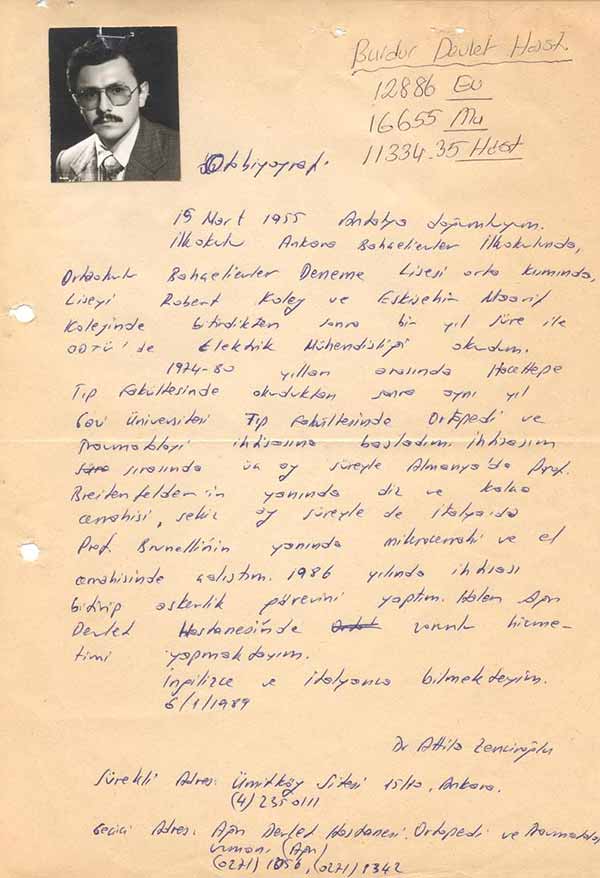 Burdur Devlet Hast.
12886 Ev
16655 Mu
11334.35 Hast
Otobiyografi.
15 Mart 1955 Antalya doğumluyum.
İlkokulu Ankara Bahçelievler İlkokulunda,
Ortaokulu Bahçelievler Deneme Lisesi orta kısmında,
Liseyi Robert Kolej ve Eskişehir Maarif
Kolejinde bitirdikten sonra bir yıl süre ile
ODTÜ'de Elektrik Mühendisliği okudum.
1974-80 yılları arasında Hacettepe
Tıp Fakültesinde okuduktan sonra aynı yıl
Gazi Üniversitesi Tıp Fakültesinde Ortopedi ve
Travmatoloji ihtisasına başladım. İhtisasım
sırasında üç ay süreyle Almanya'da Prof.
Breitenfelder'in yanında diz ve kalça
cerrahisi, sekiz ay süreyle de İtalya'da
Prof. Brunelli'nin yanında mikrocerrahi ve el
cerrahisinde çalıştım. 1986 yılında ihtisası
bitirip askerlik görevini yaptım. Halen Ağrı
Devlet Hastanesi'nde zorunlu hizme-
timi yapmaktayım.
İngilizce ve italyanca bilmekteyim.
6/1/1989
Dr Attila Zenciroğlu
Sürekli Adres: Ümitköy Sitesi 15/10, Ankara.
(4) 2350111
Geçici Adres: Ağrı Devlet Hastanesi. Ortopedi ve Travmatoloji
uzmanı (Ağrı)
(0271) 1056, (0271) 1342